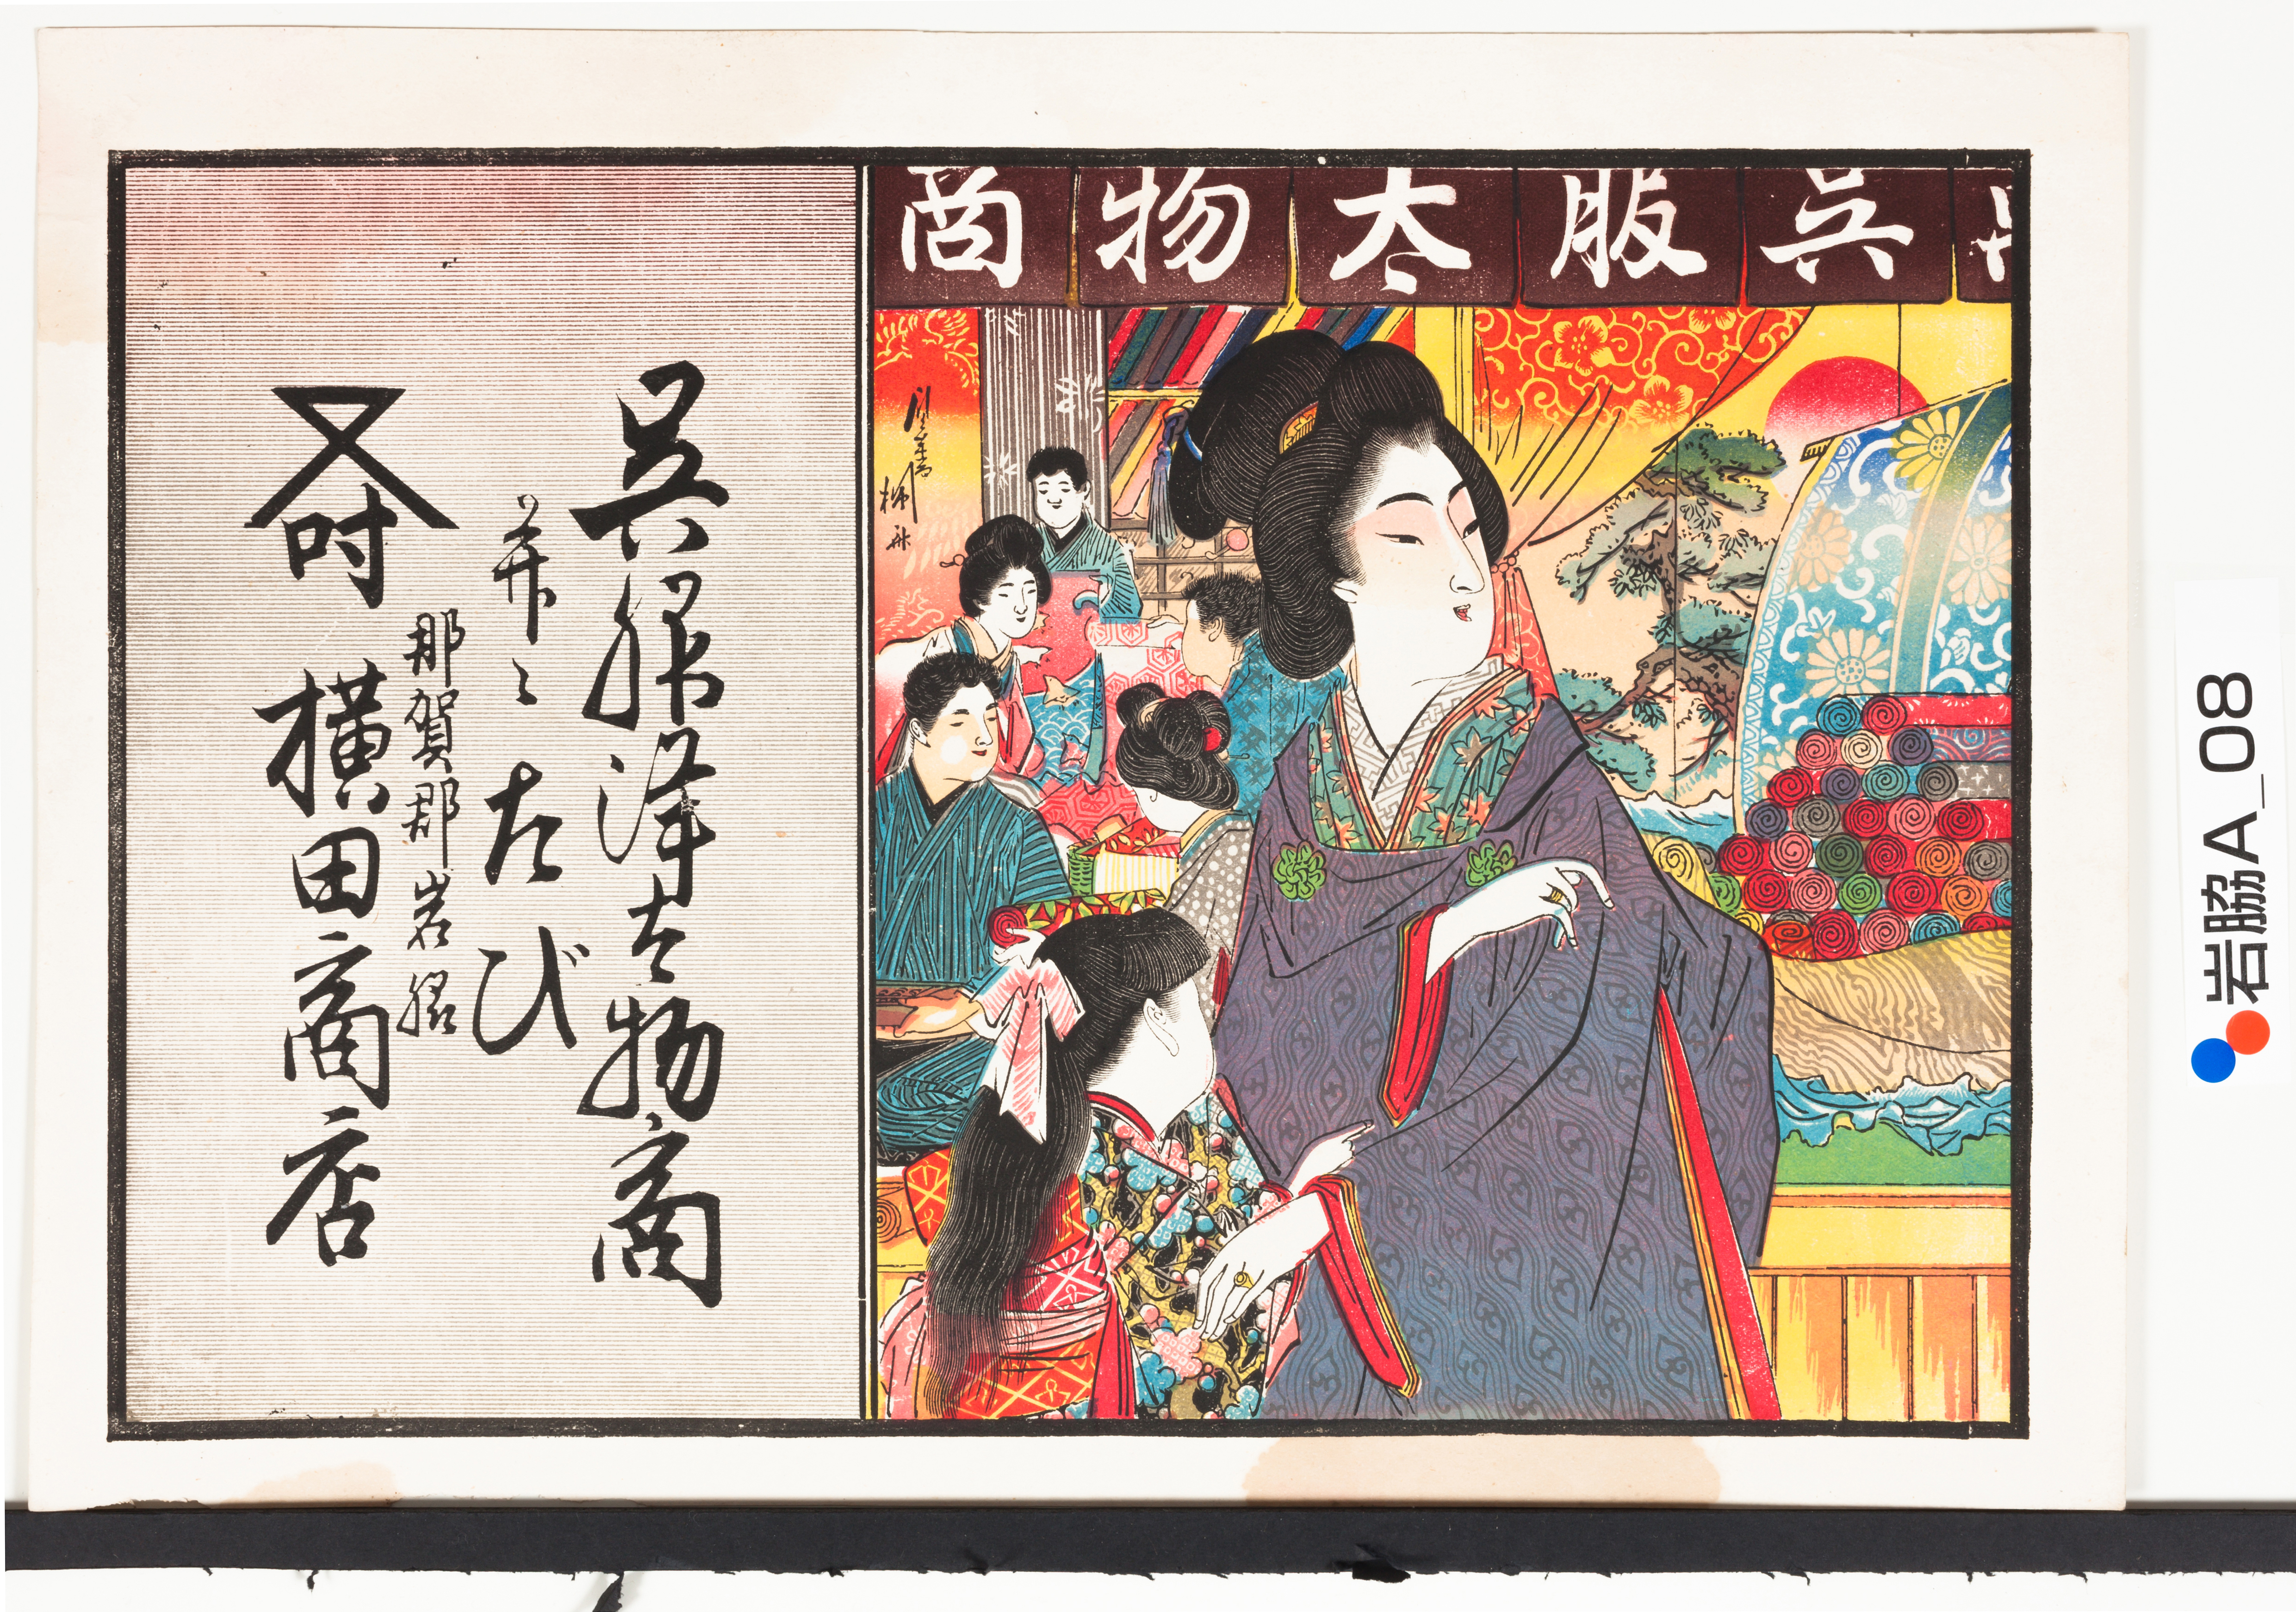 呉服太物商
呉服洋太物商
并ニたび
那賀郡岩脇
吋
横田商店
岩脇A_08